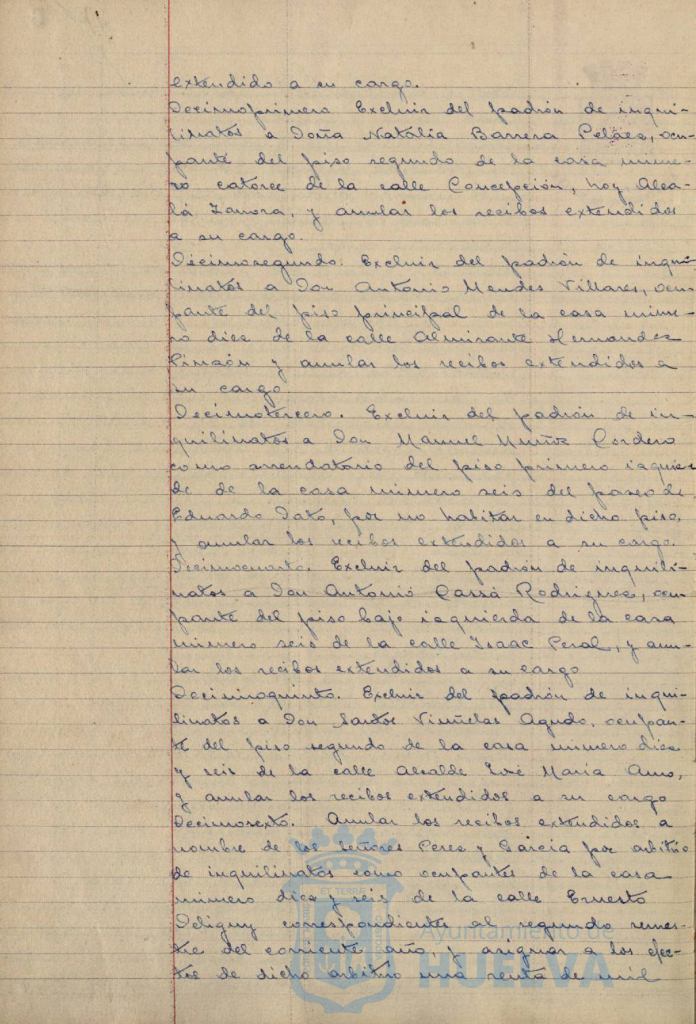 extendido a su cargo.
Decimoprimero Excluir del padrón de inqui-
linatos a Doña Natalia Barrera Peláez, ocu-
pante del piso segundo de la casa núme-
ro catorce de la calle Concepción, hoy Alca-
lá Zamora, y anular los recibos extendidos
a su cargo.
Décimosegundo. Excluir del padrón de inqui-
linatos a Don Antonio Mendes Villares, ocu-
pante del piso principal de la casa núme-
ro diez de la calle Almirante Hernandez
Pinzón y anular los recibos extendidos a
su cargo
Decimotercero. Excluir del padrón de in-
quilinatos a Don Manuel Muñoz Cordero
como arrendatario del piso primero izquier-
de de la casa número seis del paseo de
Eduardo Dato, por no habitar en dicho piso,
y anular los recibos extendidos a su cargo.
Decimocuarto. Excluir del padrón de inquili-
natos a Don Antonio Rodriguez, ocu-
pante del piso bajo izquierda de la casa
número seis de la calle Isaac Peral, y anu-
lar los recibos extendidos a su cargo
Decimoquinto. Excluir del padrón de inqui-
linatos a Don Santos Viñuelas Agudo, ocupan-
te del piso segundo de la casa número diez
y seis de la calle Alcalde José María Amo,
y anular los recibos extendidos a su cargo
Decimosexto. Anular los recibos extendidos a
nombre de los señores Perez y Garcia por arbitrio
de inquilinatos como ocupantes de la casa
número diez y seis de la calle Ernesto
Deligny correspondientes al segundo semes-
tre del corriente año y asignar a los efec-
tos de dicho arbitrio una renta de mil
Ayuntamiento de
HUELVA